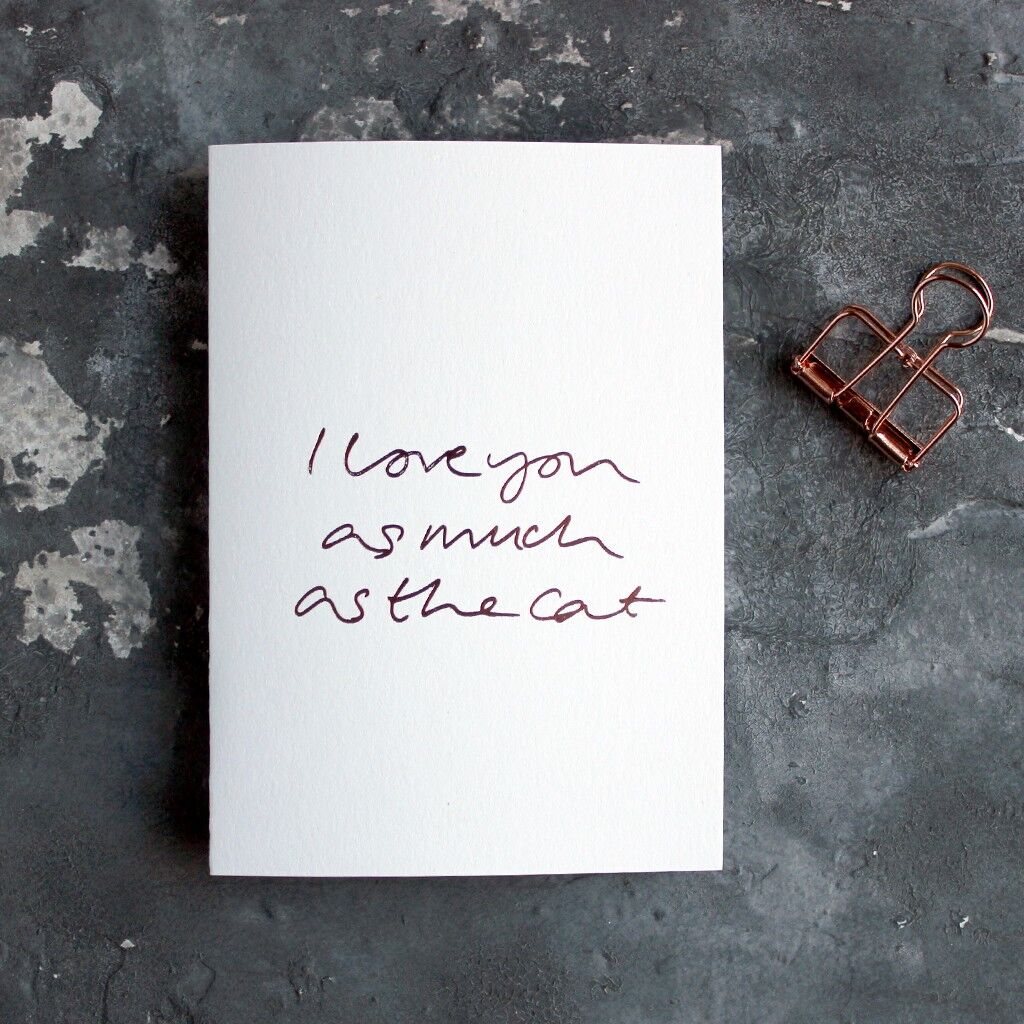 I love you
as much
as the cat